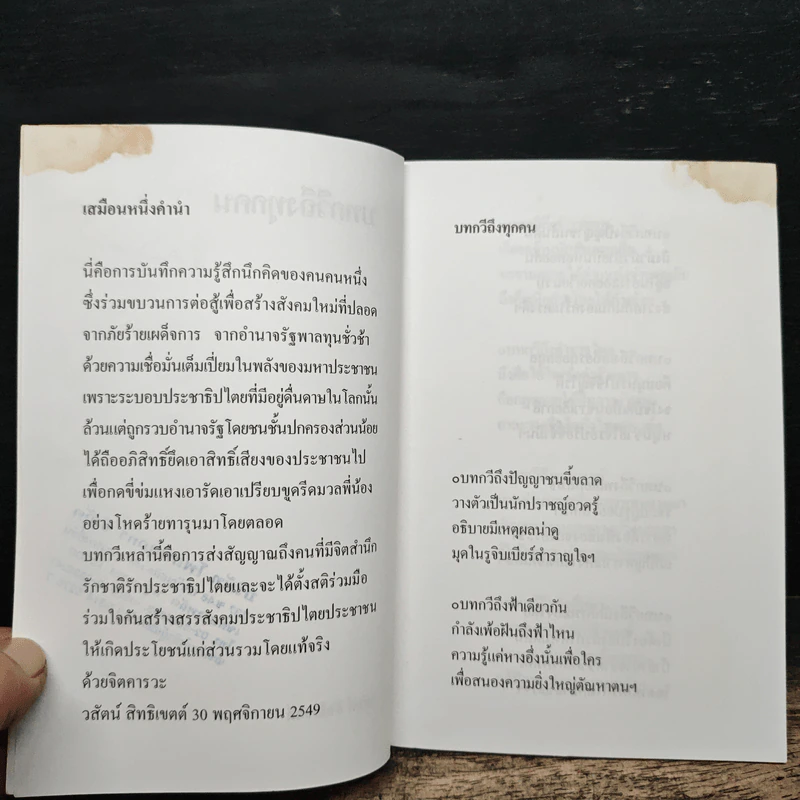 เสมือนหนึ่งคำนำ
นี่คือการบันทึกความรู้สึกนึกคิดของคนคนหนึ่ง
ซึ่งร่วมขบวนการต่อสู้เพื่อสร้างสังคมใหม่ที่ปลอด
จากภัยร้ายเผด็จการ จากอำนาจรัฐพาลทุนชั่วช้า
ด้วยความเชื่อมั่นเต็มเปี่ยมในพลังของมหาประชาชน
เพราะระบอบประชาธิปไตยที่มีอยู่ดื่นดาษในโลกนั้น
ล้วนแต่ถูกรวบอำนาจรัฐโดยชนชั้นปกครองส่วนน้อย
ได้ถืออภิสิทธิ์ยึดเอาสิทธิ์เสียงของประชาชนไป
เพื่อกดขี่ข่มแหงเอารัดเอาเปรียบขูดรีดมวลพี่น้อง
อย่างโหดร้ายทารุนมาโดยตลอด
บทกวีเหล่านี้คือการส่งสัญญาณถึงคนที่มีจิตสำนึก
รักชาติรักประชาธิปไตยและจะได้ตั้งสติร่วมมือ
ร่วมใจกันสร้างสรรสังคมประชาธิปไตยประชาชน
ให้เกิดประโยชน์แก่ส่วนรวมโดยแท้จริง
ด้วยจิตคารวะ
วสัตน์ สิทธิเขตต์ 30 พฤศจิกายน 2549
บทกวีถึงทุกคน
๐บทกวีถึงปัญญาชนขี้ขลาด
วางตัวเป็นนักปราชญ์อวดรู้
อธิบายมีเหตุผลน่าดู
มุดในรูจิบเบียร์สำราญใจฯ
๐บทกวีถึงฟ้าเดียวกัน
กำลังเพ้อฝันถึงฟ้าไหน
ความรู้แค่หางอึ่งนั้นเพื่อใคร
เพื่อสนองความยิ่งใหญ่ตัณหาตนฯ